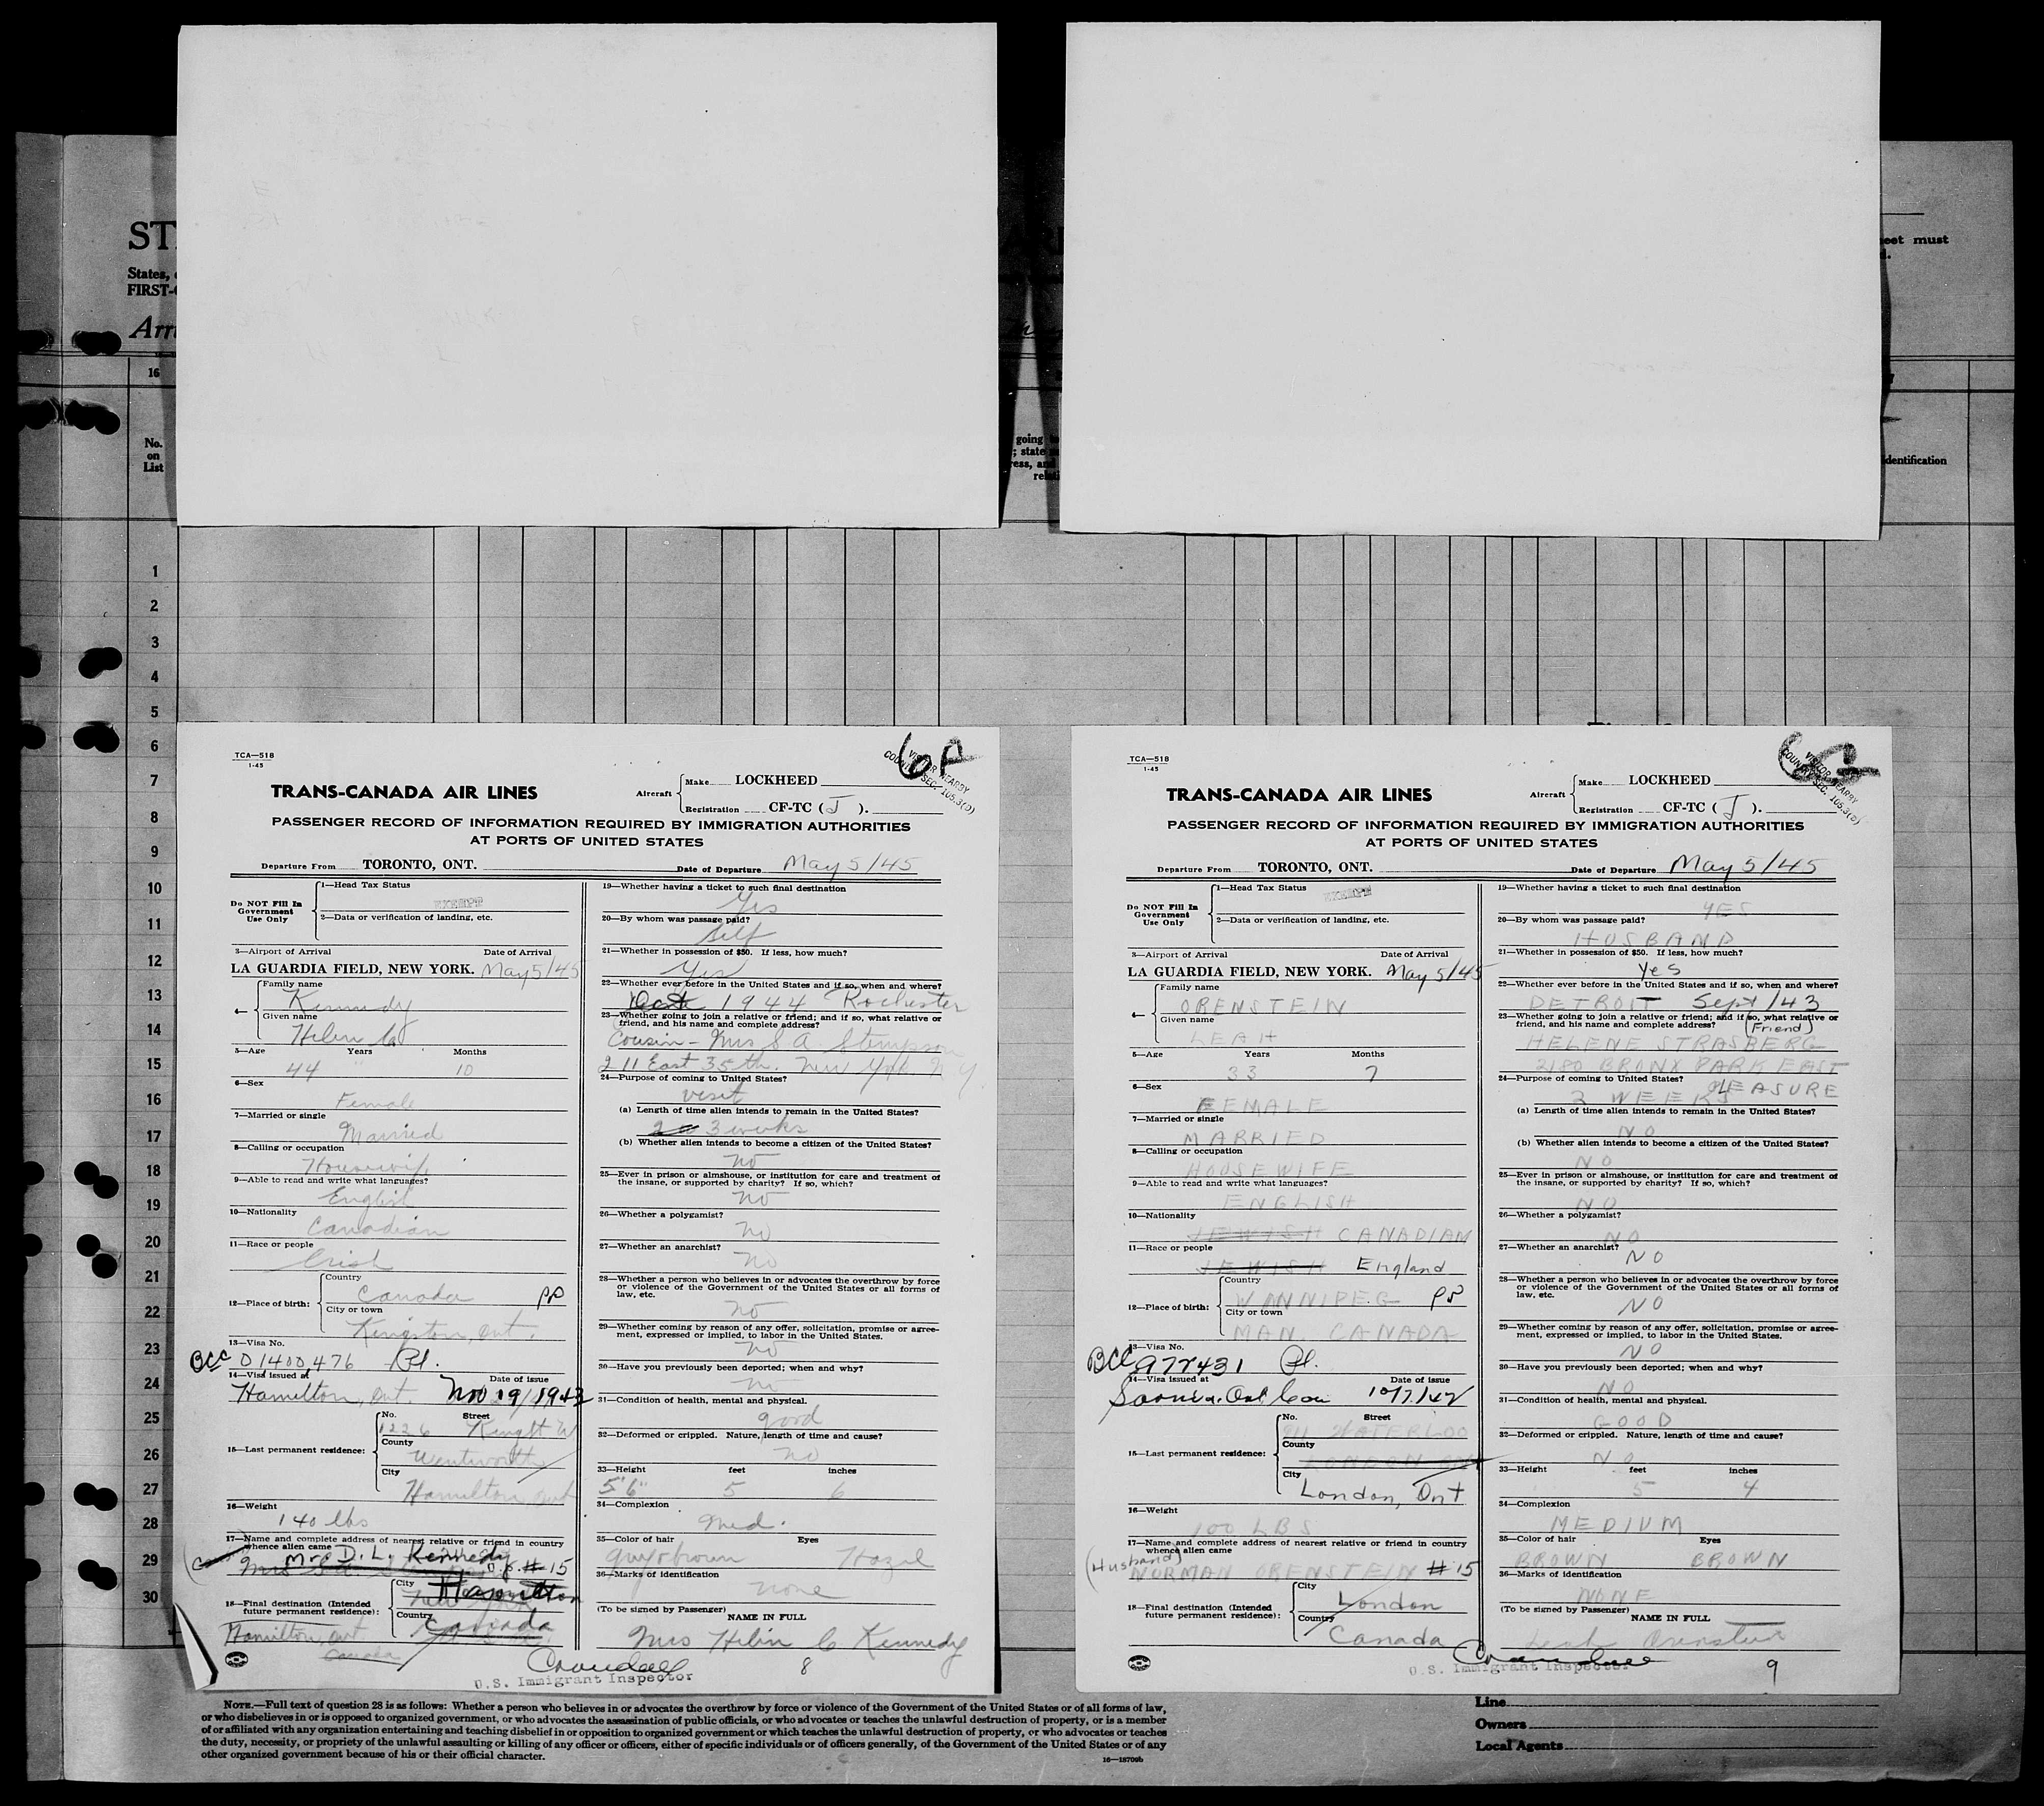 ST
States,
FIRST-
eet must
d.
Arri
16
No.
on
List
going to
; state
ress, and
rela
identification
1
2
3
4
5
6
7
8
9
10
11
12
13
14
15
16
17
18
19
20
21
22
23
24
25
26
27
28
29
30
TCA—518
1-45
VISITOR NEARBY
COUNTRY SEC. 105.3(D)
TRANS-CANADA AIR LINES
Aircraft
Make LOCKHEED
Registration CF-TC ( J ).
PASSENGER RECORD OF INFORMATION REQUIRED BY IMMIGRATION AUTHORITIES
AT PORTS OF UNITED STATES
Departure From TORONTO, ONT. Date of Departure May 5/45
Do NOT Fill In
Government
Use Only
1—Head Tax Status
EXEMPT
2—Data or verification of landing, etc.
3—Airport of Arrival Date of Arrival
LA GUARDIA FIELD, NEW YORK. May 5/45
4—
Family name
Kennedy
Given name
Helen C
5—Age Years Months
44 10
6—Sex
Female
7—Married or single
Married
8—Calling or occupation
Housewife
9—Able to read and write what languages?
English
10—Nationality
Canadian
11—Race or people
Irish
12—Place of birth:
Country
Canada PP
City or town
Kingston, Ont.
13—Visa No.
BCC 01400,476 Pl.
14—Visa issued at Date of issue
Hamilton, Ont. Nov 19/1943
15—Last permanent residence:
No. Street
1236 King St W
County
Wentworth
City
Hamilton, Ont
16—Weight
140 lbs
17—Name and complete address of nearest relative or friend in country
whence alien came
Mr. D. L. Kennedy
# 15
18—Final destination (Intended
future permanent residence):
City
Hamilton
Country
Canada
Hamilton, Ont
Canada
19—Whether having a ticket to such final destination
Yes
20—By whom was passage paid?
Self
21—Whether in possession of $50. If less, how much?
Yes
22—Whether ever before in the United States and if so, when and where?
Oct 1944 Rochester
23—Whether going to join a relative or friend; and if so, what relative or
friend, and his name and complete address?
Cousin - Mrs S. A. Stempson
211 East 35th. New York N.Y.
24—Purpose of coming to United States?
visit
(a) Length of time alien intends to remain in the United States?
3 weeks
(b) Whether alien intends to become a citizen of the United States?
no
25—Ever in prison or almshouse, or institution for care and treatment of
the insane, or supported by charity? If so, which?
no
26—Whether a polygamist?
no
27—Whether an anarchist?
no
28—Whether a person who believes in or advocates the overthrow by force
or violence of the Government of the United States or all forms of
law, etc.
no
29—Whether coming by reason of any offer, solicitation, promise or agree-
ment, expressed or implied, to labor in the United States.
no
30—Have you previously been deported; when and why?
no
31—Condition of health, mental and physical.
good
32—Deformed or crippled. Nature, length of time and cause?
no
33—Height feet inches
5'6" 5 6
34—Complexion
Med.
35—Color of hair Eyes
grey brown Hazel
36—Marks of identification
none
(To be signed by Passenger)
NAME IN FULL
Mrs Helen C Kennedy
Crandall
8
U.S. Immigrant Inspector
TCA—518
1-45
VISITOR NEARBY
COUNTRY SEC. 105.3(D)
TRANS-CANADA AIR LINES
Aircraft
Make LOCKHEED
Registration CF-TC ( J ).
PASSENGER RECORD OF INFORMATION REQUIRED BY IMMIGRATION AUTHORITIES
AT PORTS OF UNITED STATES
Departure From TORONTO, ONT. Date of Departure May 5/45
Do NOT Fill In
Government
Use Only
1—Head Tax Status
EXEMPT
2—Data or verification of landing, etc.
3—Airport of Arrival Date of Arrival
LA GUARDIA FIELD, NEW YORK. May 5/45
4—
Family name
ORENSTEIN
Given name
LEAH
5—Age Years Months
33 7
6—Sex
FEMALE
7—Married or single
MARRIED
8—Calling or occupation
HOUSEWIFE
9—Able to read and write what languages?
ENGLISH
10—Nationality
JEWISH CANADIAN
11—Race or people
JEWISH England
12—Place of birth:
Country
WINNIPEG PP
City or town
MAN CANADA
13—Visa No.
BCC 977431 Pl.
14—Visa issued at Date of issue
Sarnia, Ont, Can 10/7/42
15—Last permanent residence:
No. Street
911 WATERLOO
County
LONDON ONT
City
London, Ont
16—Weight
100 LBS
17—Name and complete address of nearest relative or friend in country
whence alien came
(Husband)
NORMAN ORENSTEIN # 15
18—Final destination (Intended
future permanent residence):
City
London
Country
Canada
19—Whether having a ticket to such final destination
YES
20—By whom was passage paid?
HUSBAND
21—Whether in possession of $50. If less, how much?
Yes
22—Whether ever before in the United States and if so, when and where?
DETROIT Sept /43
23—Whether going to join a relative or friend; and if so, what relative or
friend, and his name and complete address? (Friend)
HELENE STRASBERG
2180 BRONX PARK EAST
24—Purpose of coming to United States?
PLEASURE
2 WEEKS
(a) Length of time alien intends to remain in the United States?
NO
(b) Whether alien intends to become a citizen of the United States?
NO
25—Ever in prison or almshouse, or institution for care and treatment of
the insane, or supported by charity? If so, which?
NO
26—Whether a polygamist?
NO
27—Whether an anarchist?
NO
28—Whether a person who believes in or advocates the overthrow by force
or violence of the Government of the United States or all forms of
law, etc.
NO
29—Whether coming by reason of any offer, solicitation, promise or agree-
ment, expressed or implied, to labor in the United States.
NO
30—Have you previously been deported; when and why?
NO
31—Condition of health, mental and physical.
GOOD
32—Deformed or crippled. Nature, length of time and cause?
NO
33—Height feet inches
5 4
34—Complexion
MEDIUM
35—Color of hair Eyes
BROWN BROWN
36—Marks of identification
NONE
(To be signed by Passenger)
NAME IN FULL
Leah Orenstein
Crandall
U.S. Immigrant Inspector
9
NOTE.—Full text of question 28 is as follows: Whether a person who believes in or advocates the overthrow by force or violence of the Government of the United States or of all forms of law,
or who disbelieves in or is opposed to organized government, or who advocates the assassination of public officials, or who advocates or teaches the unlawful destruction of property, or is a member
of or affiliated with any organization entertaining and teaching disbelief in or opposition to organized government or which teaches the unlawful destruction of property, or who advocates or teaches
the duty, necessity, or propriety of the unlawful assaulting or killing of any officer or officers, either of specific individuals or of officers generally, of the Government of the United States or of any
other organized government because of his or their official character.
16—18709b
Line
Owners
Local Agents